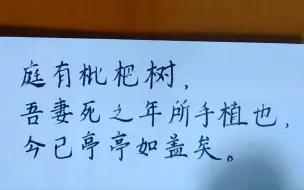 庭有枇杷树，
吾妻死之年所手植也，
今已亭亭如盖矣。